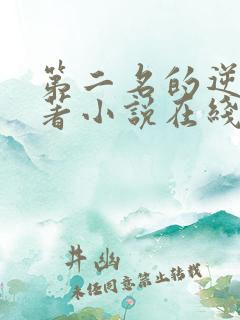 第二名的逆
著小说在线
井幽
未经同意禁止转载